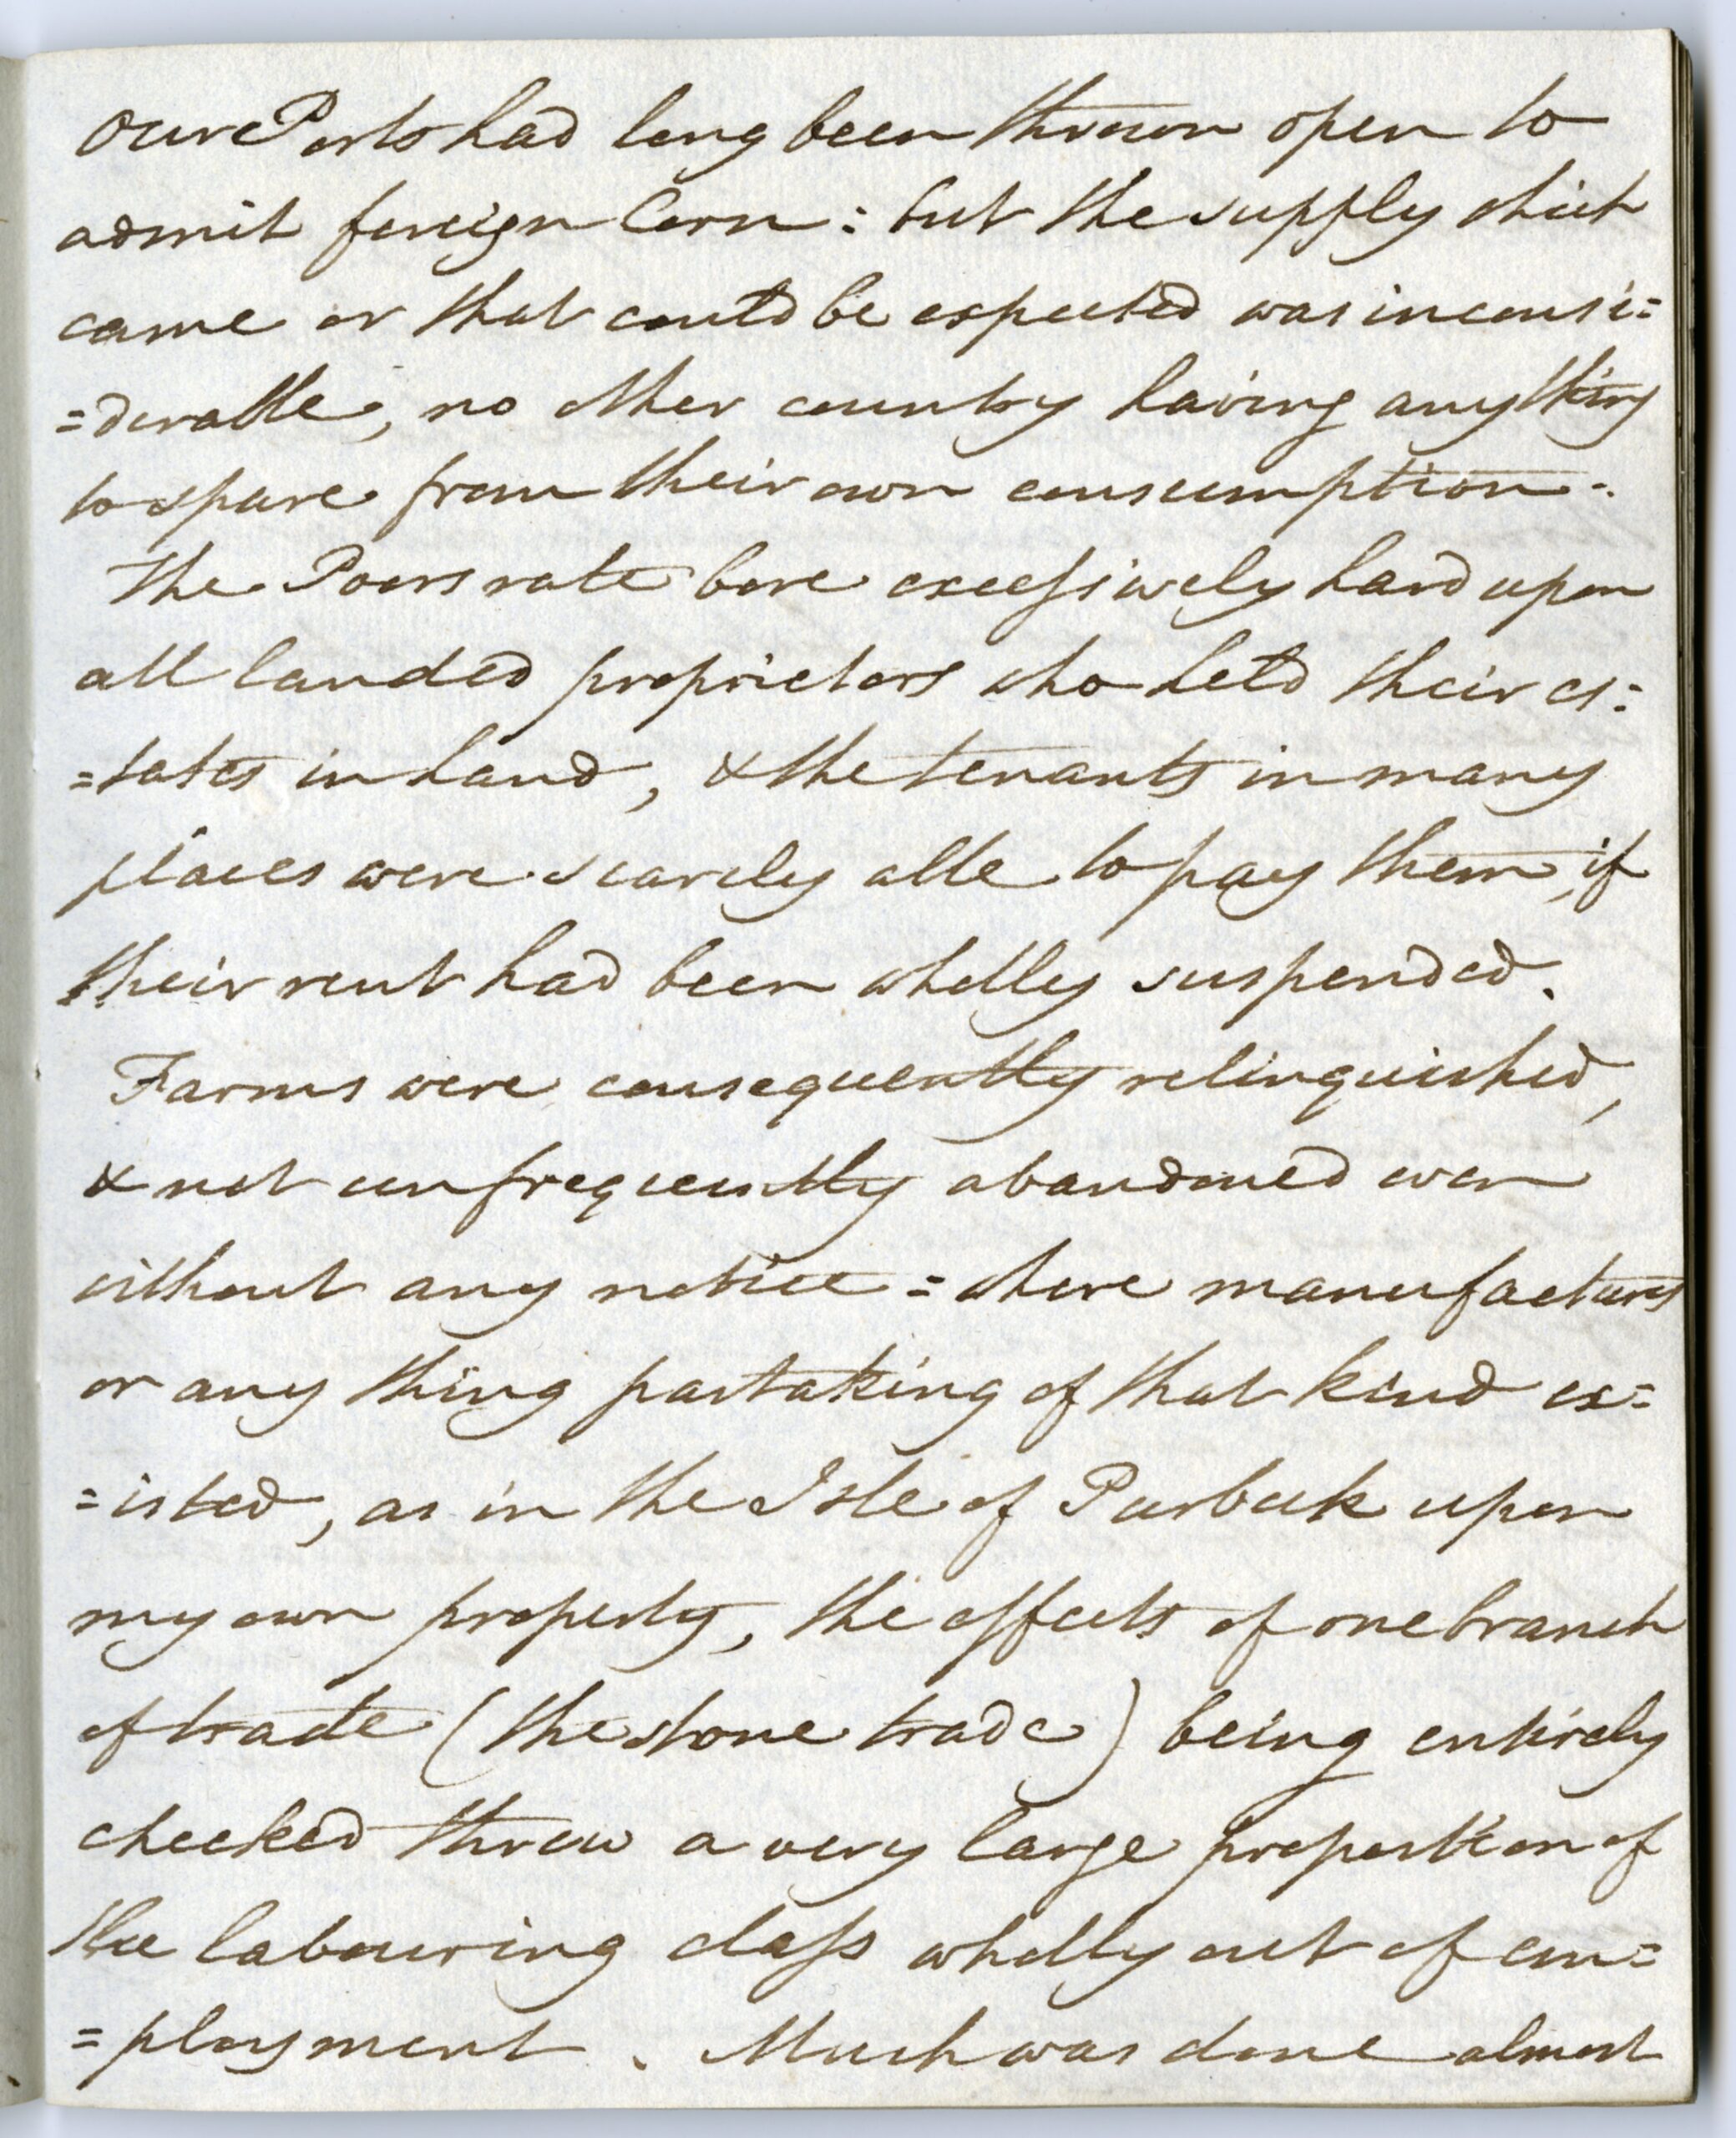 Our Ports had long been thrown open to
admit foreign Corn: but the supply which
came or that could be expected was inconsi=
=derable, no other country having any thing
to spare from their own consumption.
The Poors rate bore excessively hard upon
all landed proprietors who held their es=
=tates in hand, & the tenants in many
places were scarcely able to pay them, if
their rent had been wholly suspended.
Farms were consequently relinquished,
& not unfrequently abandoned even
without any notice = where manufactures
or any thing partaking of that kind ex=
=isted, as in the Isle of Purbeck upon
my own property, the effects of one branch
of trade (the stone trade) being entirely
checked threw a very large proportion of
the labouring class wholly out of em=
=ployment. Much was done almost